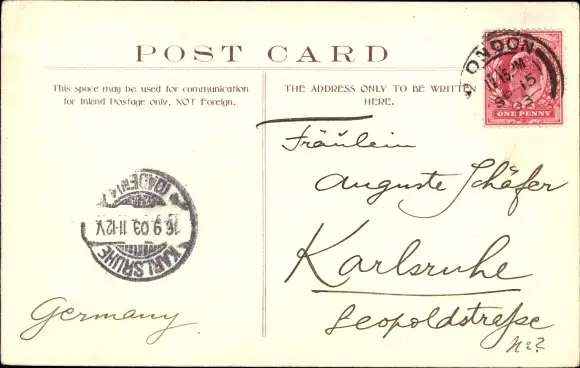 POST CARD
This space may be used for communication
for Inland Postage only, NOT Foreign.
THE ADDRESS ONLY TO BE WRITTEN
HERE.
LONDON
SP 15
03
ONE PENNY
Fräulein
Auguste Schäfer
Karlsruhe
Leopoldstraße
No 2
KARLSRUHE
16.9.03.11-12V.
(BADEN)
Germany